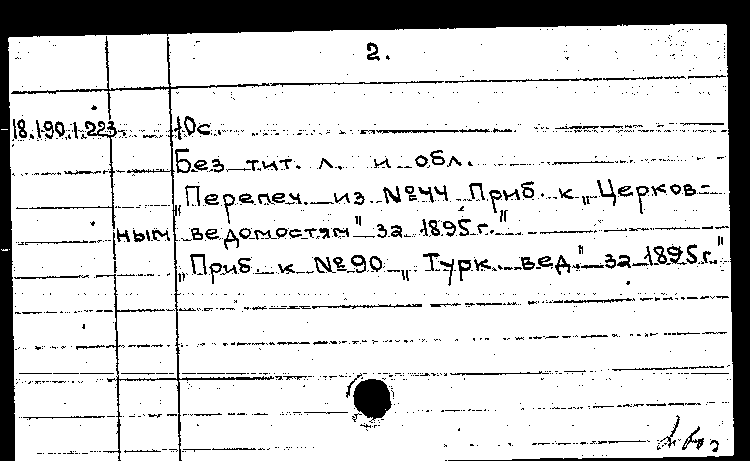 2.
18.190.1.223. 10с.
Без тит. л. и обл.
„Перепеч. из №44 Приб. к „Церков-
ным ведомостям" за 1895 г."
„Приб. к №90 „Турк. вед." за 1895 г."